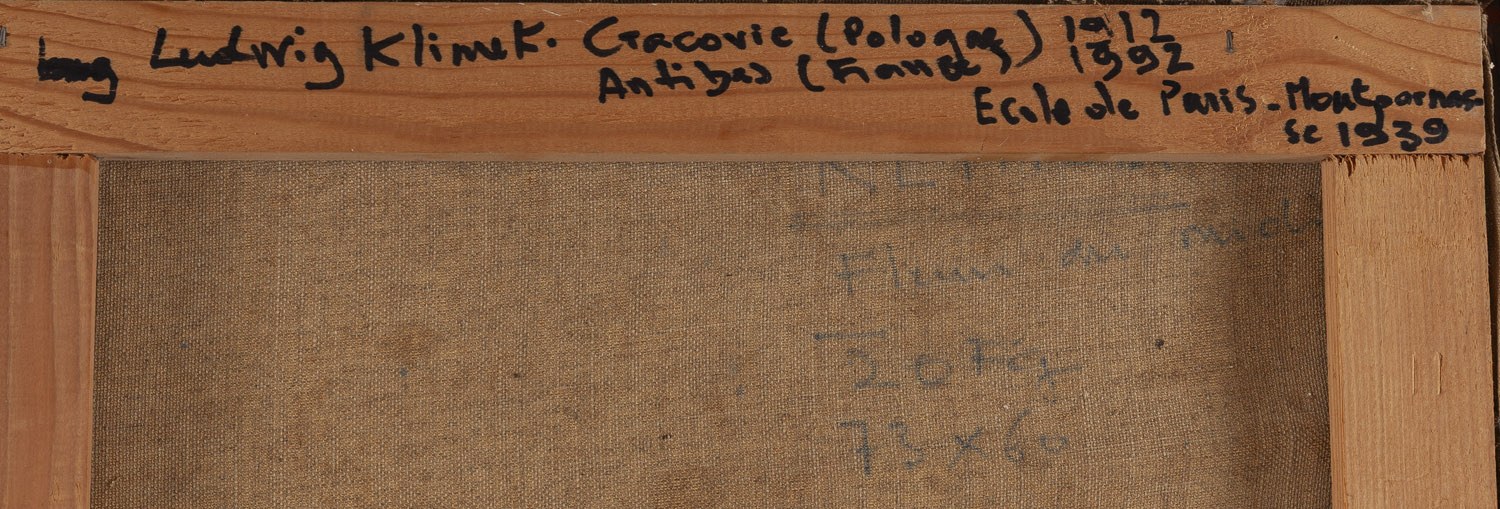 Ludwig Klimek. Cracovie (Pologne) 1912
Antibes (France) 1992
Ecole de Paris - Montparnas-
se 1939
Fleurs du midi
73 x 60